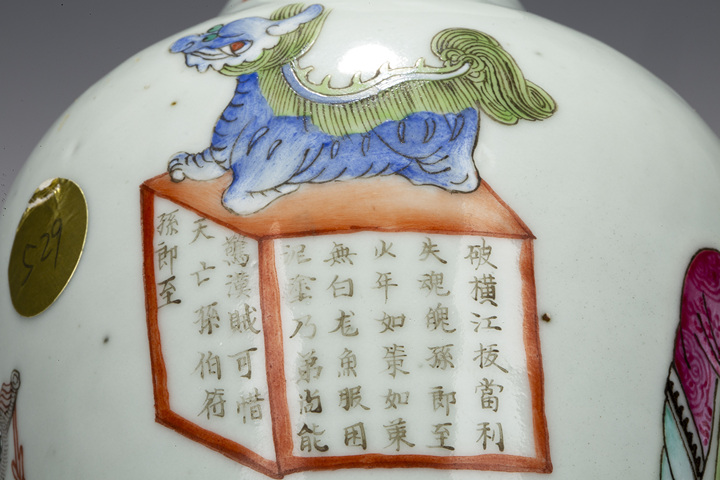 破橫江拔當利
失魂魄孫郎至
火年如棠如棗
無白龙魚服困
泥塗乃弟尚能
驚漢賊可惜
天亡孫伯符
孫郎至
529